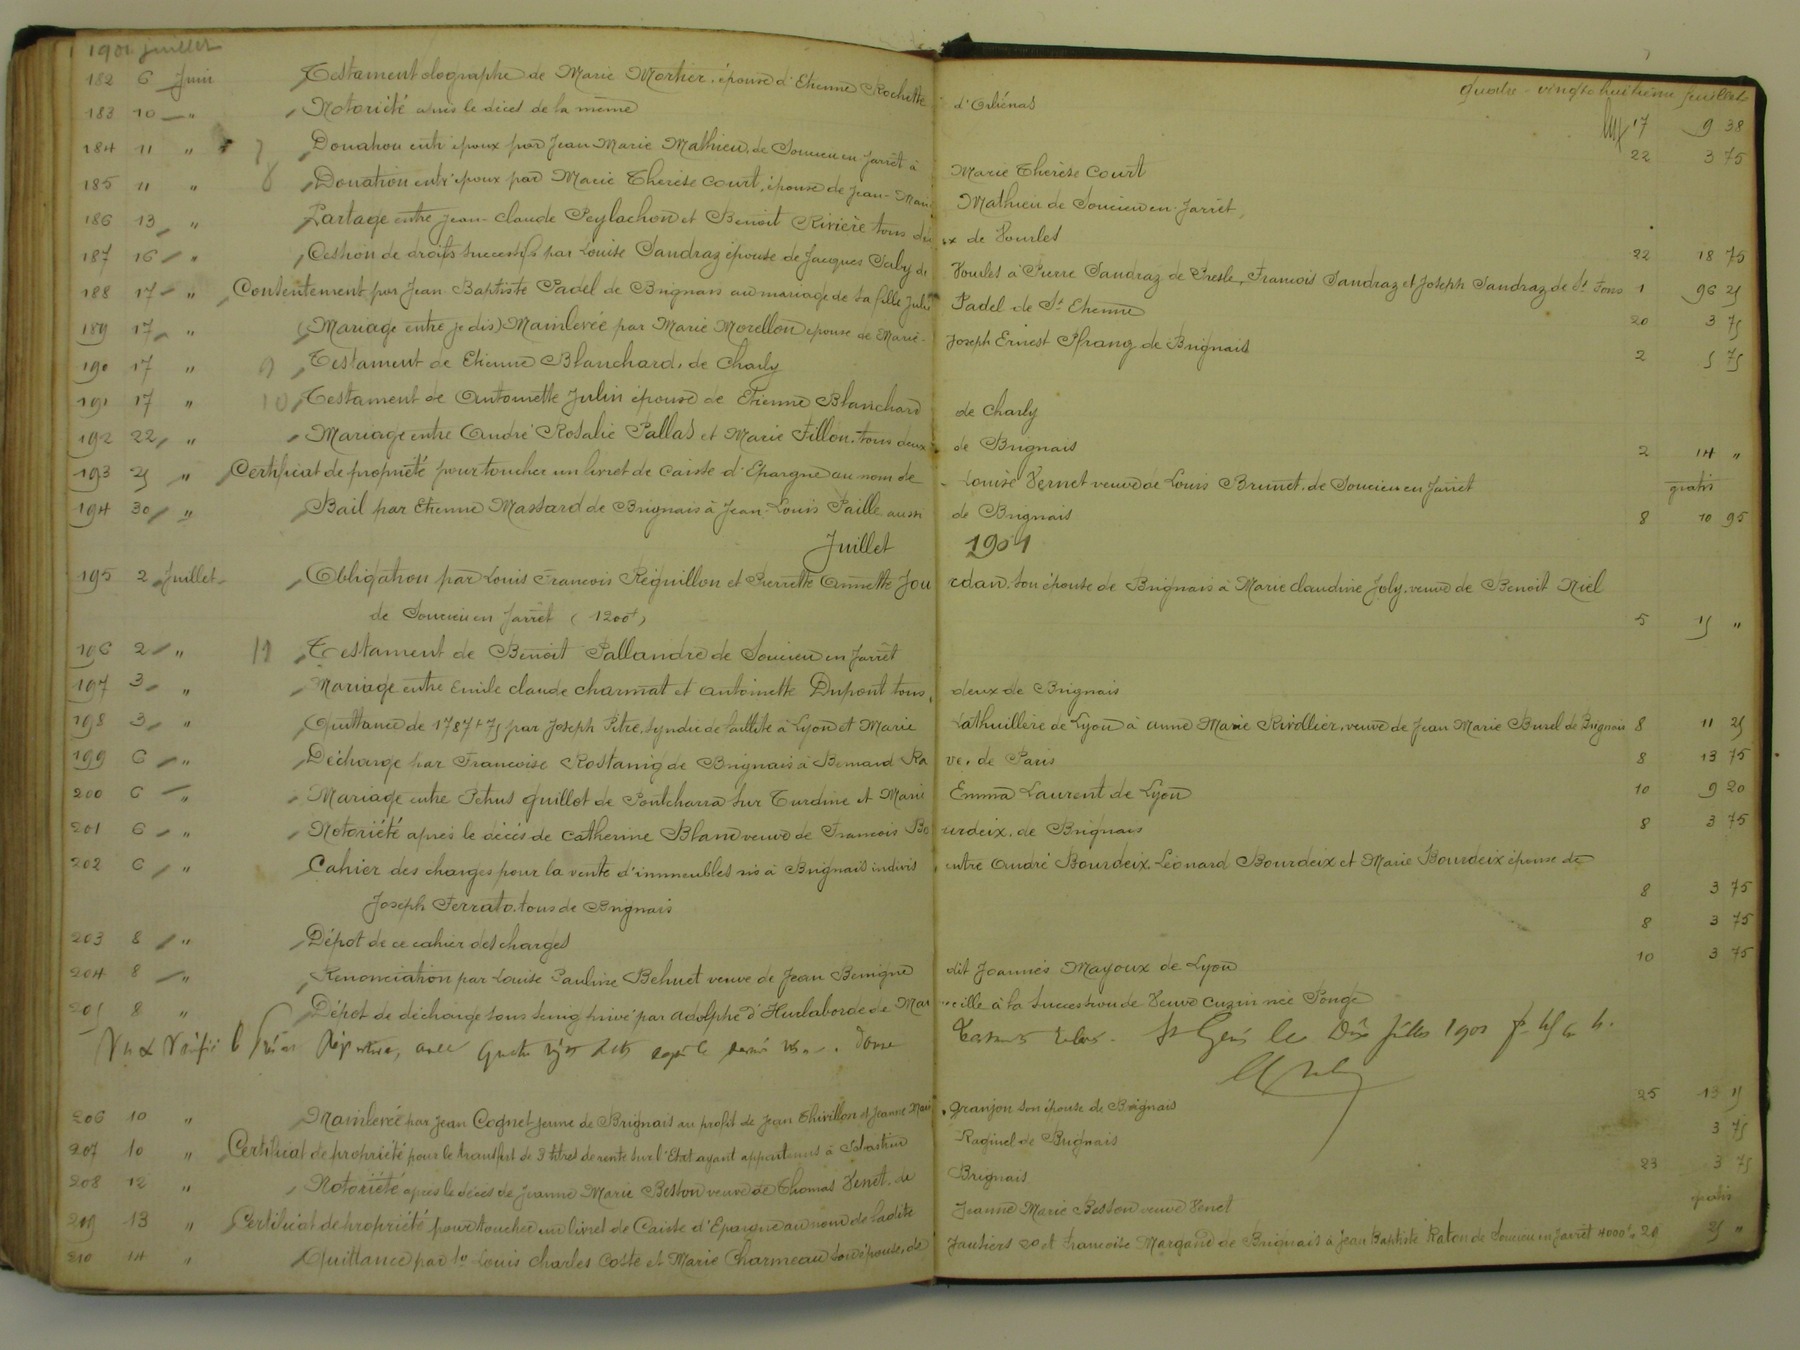 1901 juillet
quatre-vingt huitième feuillet
182 6 Juin Testament olographe de Marie Mortier, épouse d'Etienne Rochette d'Orliénas 17 9 38
183 10 " Notoriété après le décès de la même 22 3 75
184 11 " 7 Donation entre époux par Jean Marie Mathieu, de Soucieu en Jarrêt à Marie Thérèse Court
185 11 " 8 Donation entr'époux par Marie Thérèse Court, épouse de Jean-Marie Mathieu de Soucieu en Jarrêt,
186 13 " Partage entre Jean-Claude Peylachon et Benoit Rivière tous deux de Vourles 22 18 75
187 16 " Cession de droits successifs par Louise Sandraz épouse de Jacques Saby de Vourles à Pierre Sandraz de Presle, François Sandraz et Joseph Sandraz de St Fons 1 96 25
188 17 " Consentement par Jean Baptiste Padel de Brignais au mariage de sa fille Julie Padel de St Etienne 20 3 75
189 17 " (Mariage entre je dis) Mainlevée par Marie Morellon épouse de Marie-Joseph Ernest Pfrang de Brignais 2 5 75
190 17 " 9 Testament de Etienne Blanchard, de Charly
191 17 " 10 Testament de Antoinette Julin épouse de Etienne Blanchard de Charly
192 22 " Mariage entre André Rosalie Pallas et Marie Fillon, tous deux de Brignais 2 14 "
193 25 " Certificat de propriété pour toucher un livret de Caisse d'Epargne au nom de Louise Vernet veuve de Louis Brunet, de Soucieu en Jarrêt gratis
194 30 " Bail par Etienne Massard de Brignais à Jean-Louis Paille aussi de Brignais 8 10 95
Juillet 1901
195 2 Juillet Obligation par Louis François Reguillon et Pierrette Annette Jourdan, son épouse de Brignais à Marie Claudine Joly, veuve de Benoit Niel
de Soucieu en Jarrêt (1200f) 5 15 "
196 2 " 11 Testament de Benoit Pallandre de Soucieu en Jarrêt
197 3 " Mariage entre Emile Claude Charmat et Antoinette Dupont tous deux de Brignais
198 3 " Quittance de 1787f 75 par Joseph Pitre, syndic de faillite à Lyon et Marie Lathuillère de Lyon à Anne Marie Rivollier, veuve de Jean Marie Burel de Brignais 8 11 25
199 6 " Décharge par Françoise Rostanig de Brignais à Bernard Rave, de Paris 8 13 75
200 6 " Mariage entre Petrus Guillot de Pontcharra sur Turdine et Marie Emma Laurent de Lyon 10 9 20
201 6 " Notoriété après le décès de Catherine Blanc veuve de François Bourdeix, de Brignais 8 3 75
202 6 " Cahier des charges pour la vente d'immeubles sis à Brignais indivis entre André Bourdeix, Léonard Bourdeix et Marie Bourdeix épouse de
Joseph Ferrato, tous de Brignais 8 3 75
203 8 " Dépôt de ce cahier des charges 8 3 75
204 8 " Renonciation par Louise Pauline Behuet veuve de Jean Benigne dit Joannès Mayoux de Lyon 10 3 75
205 8 " Dépôt de décharge sous seing privé par Adolphe d'Hurlaborde de Marseille à la succession de Veuve Cuzin née Ponge
Vu & Vérifié le présent Répertoire, avec quatre vingt St Genis le Dix Juillet 1901
206 10 " Mainlevée par Jean Cognet jeune de Brignais au profit de Jean Thivillon et Jeanne Marie Granjon son épouse de Brignais 25 13 15
207 10 " Certificat de propriété pour le transfert de 3 titres de rente sur l'Etat ayant appartenus à Sébastien Raginel de Brignais 3 75
208 12 " Notoriété après le décès de Jeanne Marie Besson veuve de Thomas Venet, de Brignais 23 3 75
209 13 " Certificat de propriété pour toucher un livret de Caisse d'Epargne au nom de ladite Jeanne Marie Besson veuve Venet gratis
210 14 " Quittance par 1º Louis Charles Coste et Marie Charmeau son épouse, de Jautiers 2º et Françoise Margand de Brignais à Jean Baptiste Raton de Soucieu en Jarrêt 4000f. 20 25 "